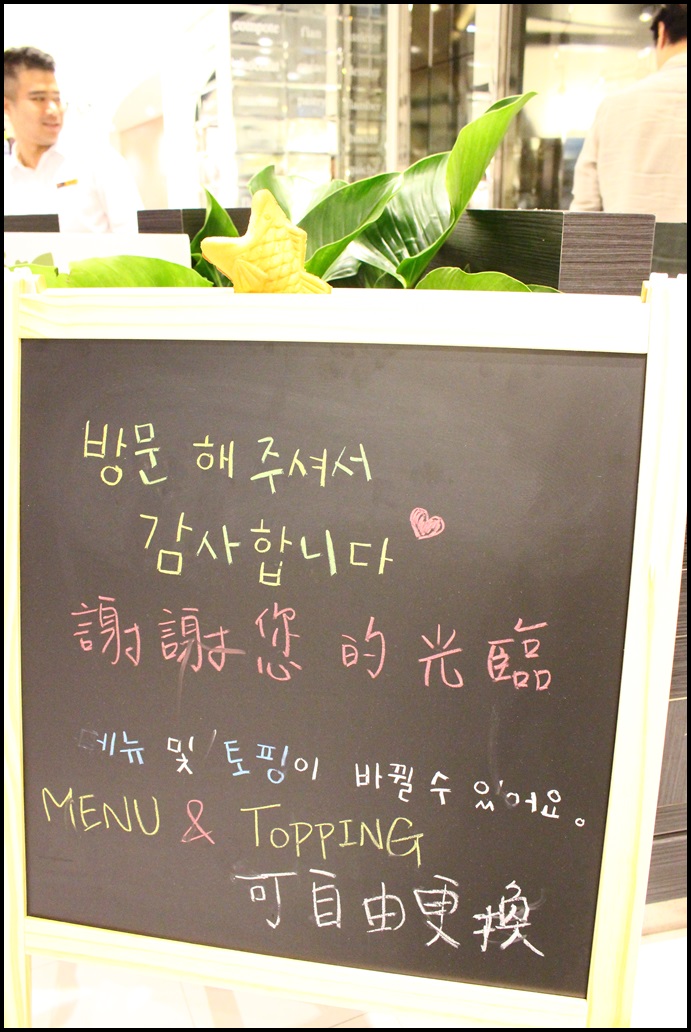 방문 해 주셔서
감사합니다
謝謝您的光臨
메뉴 및 토핑이 바뀔 수 있어요。
MENU & TOPPING
可自由更換